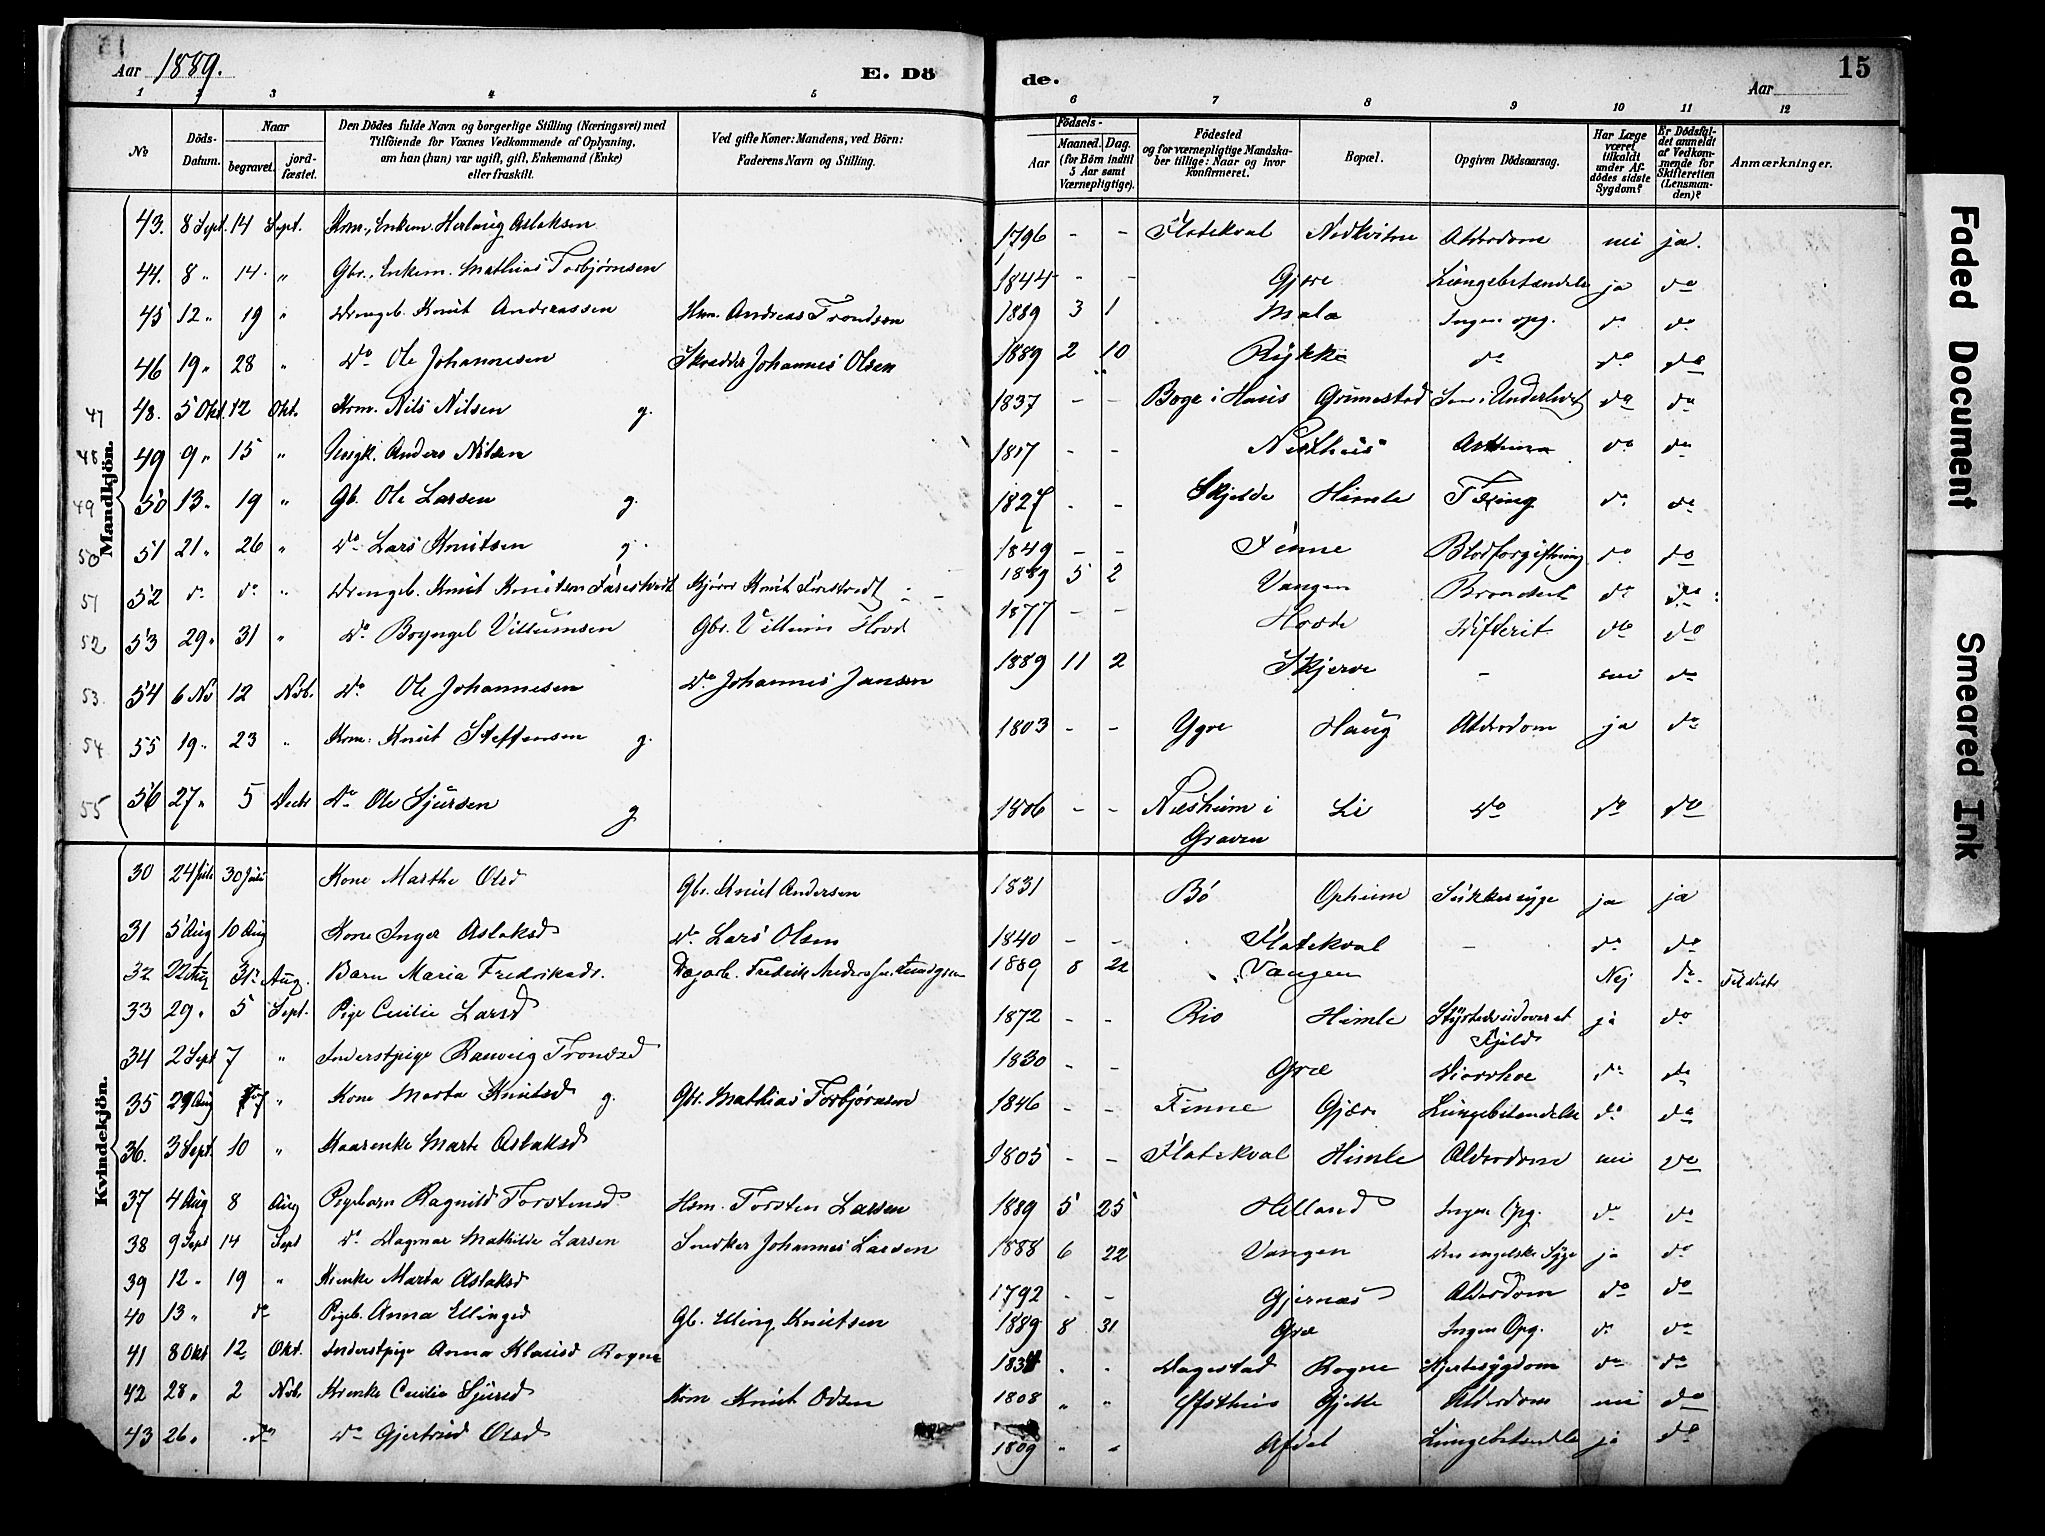 Aar 1889. E. Dö de. Aar 15
1 2 3 4 5 6 7 8 9 10 11 12
No Döds-Datum. Naar begravet. jord-fæstet. Den Dödes fulde Navn og borgerlige Stilling (Næringsvei) med Tilföiende for Voxnes Vedkommende af Oplysning, om han (hun) var ugift, gift, Enkemand (Enke) eller fraskilt. Ved gifte Koner: Mandens, ved Börn: Faderens Navn og Stilling. Födsels- Aar Maaned. Dag. (for Börn indtil 5 Aar samt Værnepligtige). Födested og for værnepligtige Mandskaber tillige: Naar og hvor konfirmeret. Bopæl. Opgiven Dödsaarsag. Har Læge været tilkaldt under Afdödes sidste Sygdom? Er Dödsfaldet anmeldt af Vedkommende for Skifteretten (Lensmanden)? Anmærkninger.
Mandkjön.
43. 8 Sept. 14 Sept. Enkem. Herlaug Aslaksen 1796 - - Flatekval Nedkvitne Alderdom nei ja.
44. 8 " 14 " Gbr., Enkem. Mathias Torbjørnsen 1844 - - Gjære Lungebetændelse ja do
45 12 " 19 " Drengeb. Knut Andreassen Hsm. Andreas Trondsen 1889 3 1 Mala Ingen opg. do do
46 19 " 28 " do Ole Johannesen Skredder Johannes Olsen 1889 2 10 Rykke do do do
47 48. 5 Okt. 12 Okt. Nils Nilsen g. 1837 - - Boge i Hosis Grimestad i Underlivet do do
48 49 9 " 15 " Ungk. Anders Nilsen 1817 - - Nesthus Asthma do do
49 50 13 " 19 " Gb. Ole Larsen g. 1827 - - Skjelde Himle Tæring do do
50 51 21 " 26 " do Lars Knutsen g. 1849 - - Finne Blodforgiftning do do
51 52 do do " Drengeb. Knut Knutsen Farestvedt Knut Farestvedt 1889 5 2 Vangen do do
52 53 29 " 31 " do Villumsen Gbr. Villum Hovd 1877 - - Hovde Difterit do do
53 54 6 No 12 Nob. do Ole Johannesen do Johannes Jansen 1889 11 2 Skjerve - nei do
54 55 19 " 23 " Knut Steffensen g. 1803 - - Ygre Haug Alderdom ja do
55 56 27 " 5 Decb do Ole Sjursen g 1806 - - Næsheim i Graven Li do do do
Kvindekjön.
30 24 Juli 30 Juli Kone Marthe Olsd Gbr. Knut Andersen 1831 Bö Opheim Sukkersyge ja ja
31 5 Aug 10 Aug Kone Inger Aslaksd do Lars Olsen 1840 - - Flatekval - do do
32 22 Aug 31 Aug. Barn Maria Fredriksd. Dagarb. Fredrik 1889 8 22 Vangen Nej do
33 29 " 5 Sept. Pige Cecilie Larsd 1872 - - Rio Himle Styrtede udover et Fjeld ja do
34 2 Sept 7 " Inderstpige Ranveig Trondsd 1830 - - Græ do do
35 29 Aug " Kone Marta Knutsd g. Gbr. Mathias Torbjørnsen 1846 - - Finne Gjære Lungebetændelse do do
36. 3 Sept. 10 " Kaarenke Marte Aslaksd 1805 - - Flatekval Himle Alderdom nei do
37 4 Aug 8 Aug Pigebarn Ragnild Torstensd Hsm. Torsten Larsen 1889 5 25 Helland Ingen Opg. do do
38 9 Sept 14 Sept do Dagmar Mathilde Larsen Snedker Johannes Larsen 1888 6 22 Vangen Den engelske Syge ja do
39 12 " 19 " Marta Aslaksd 1792 - - Gjernæs Alderdom do do
40 13 " do Pigeb. Anna Ellingsd Gb. Elling Knutsen 1889 8 31 Græ Ingen Opg. do do
41 8 Okt 12 Okt. Inderstpige Anna Klausd Rogne 1834 " " Dagestad Rogne Hjertesygdom do do
42 28 " 2 Nob. Cecilia Sjursd Knut Odsen 1808 " " Gjelle Alderdom nei do
43 26 " do do Gjertrud Olsd 1809 " " Afdal Lungebetændelse ja do
Faded Document
Smeared Ink